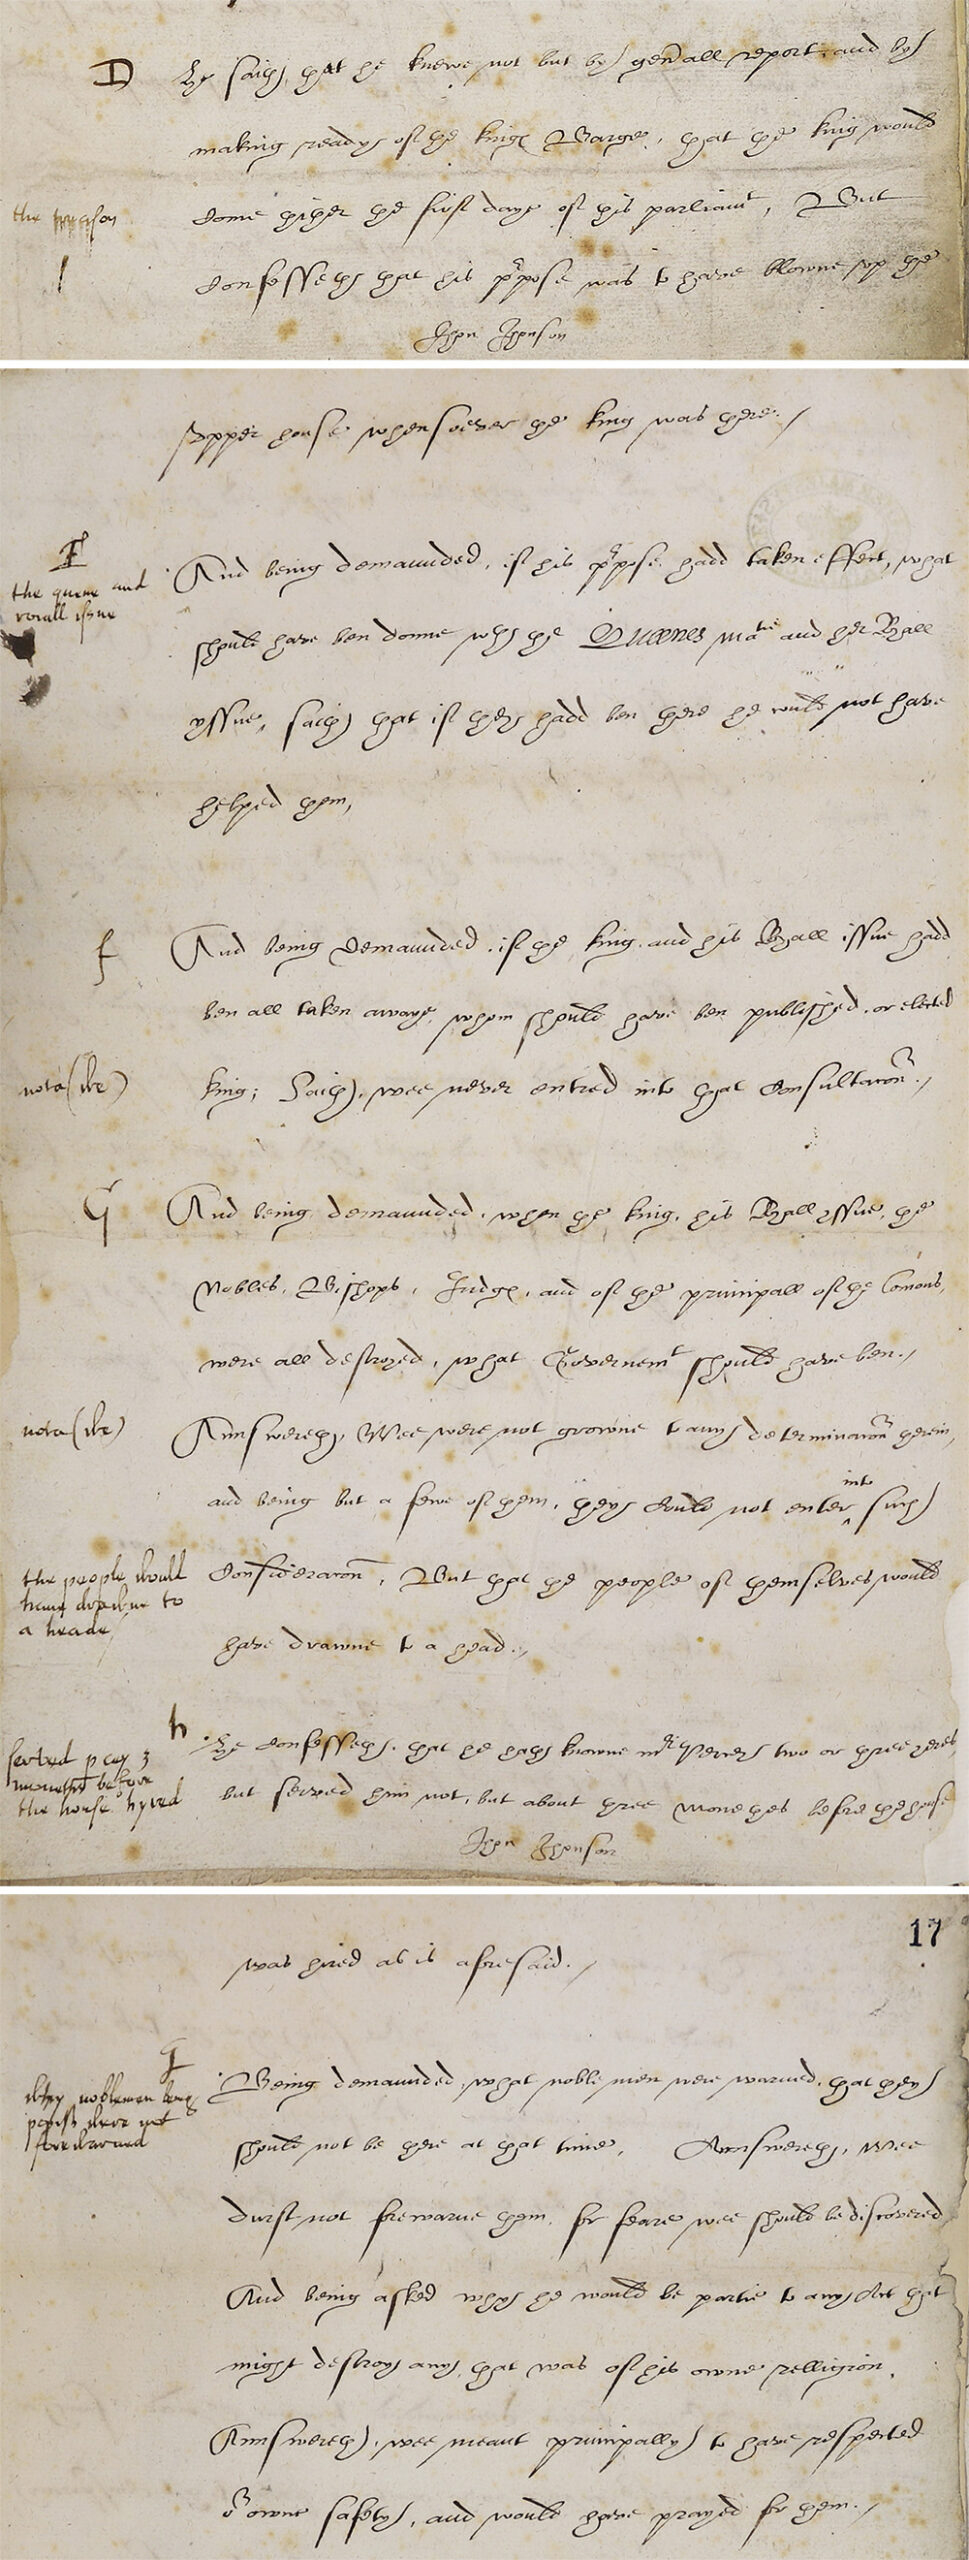 D
He saith, that he knewe not but by gen̄all report, and by
making ready of the kings Barge, that the king would
the treason
come thither the first daye of this parliamt, But
confesseth that his p'pose was to have blowne up the
Jhon Jhonson
Upper house whensoever the king was there./
E
the quene and
roiall issue
And being demaunded, if his p'pose hadd taken effect, what
should have ben donne wth the Queenes Matie and her Royall
yssue, saith that if they hadd ben there he would not have
helped them,
f
And being demaunded, if the king, and his Royall issue hadd
ben all taken awaye, whom should have ben published, or elected
nota
king; Saith, wee never entred into that Consultacon./
G
And being demaunded, when the king, his Royall yssue, the
Nobles, Bishops, Judges, and of the principall of the Comons,
were all destroyed, what Governemt should have ben./
nota
Aunswereth, Wee were not growne to any determinacon therein,
and being but a fewe of them, they could not enter into such
the people would
have drawne to
a heade
Consideracon, But that the people of themselves would
have drawne to a head./
h
served pcey 3
moneths before
the house hyred
He confesseth, that he hath knowne mr Percy two or three yeres,
but served him not, but about three monethes before the house
Jhon Jhonson
17
was hired as is aforesaid./
I
why noblemen being
papists were not
forewarned
Being demaunded, what noble men were warned, that they
should not be there at that time, Aunswereth, Wee
durst not forewarne them, for feare wee should be discovered
And being asked why he would be partie to any Act that
might destroy any, that was of his owne relligion,
Aunswereth, wee meant principally to have respected
or owne safety, and would have prayed for them./